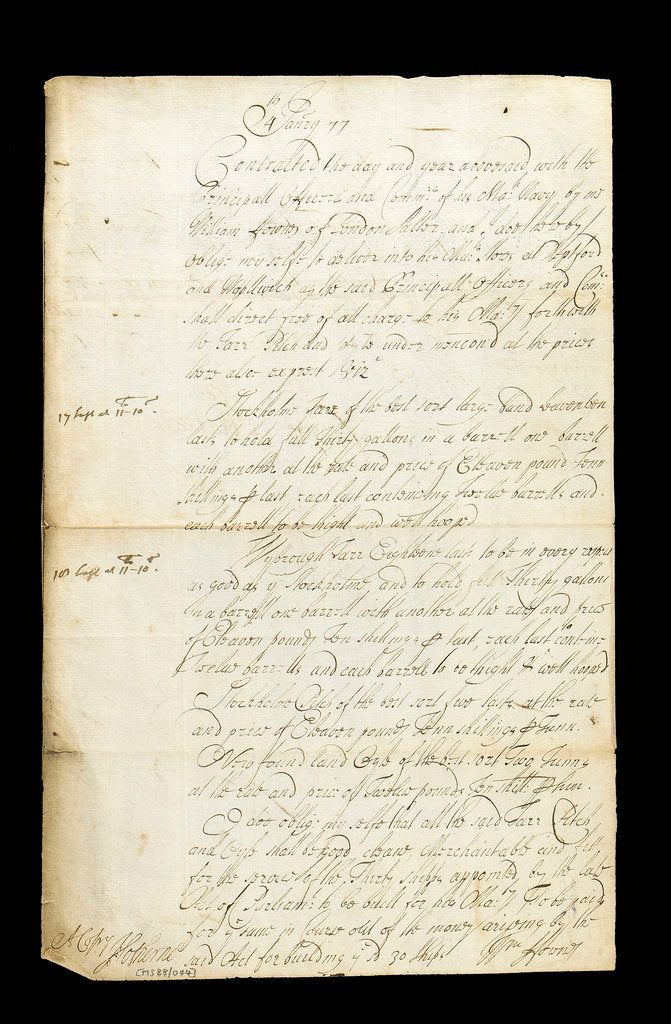 14th Janry 77
Contracted the day and year abovesaid with the
Principall Officers and Comrs of his Mats Navy by me
William of London Sailor and I doe hereby
oblige my selfe to deliver into his Mats stores at Deptford
and Woolwich as the said Principall Officers and Comrs
shall direct free of all charge to his Maty forthwith
the Tarr Pitch and oyle under mencond at the prices
there also exprest Vizt
17 last at 11-10
Stockholme Tarr of the best sort large band Seaventeen
lasts to hold full thirty gallons in a barrell one barrell
with another at the rate and price of Eleaven pound Tenn
shillings p last each last conteineing Twelve barrells and
each barrell to be thight and well hooped
18 last at 11-10
Wyborough Tarr Eighteene lasts to be in every respect
as good as ye Stockholme and to hold full Thirty gallons
in a barrell one barrell with another at the rate and price
of Eleaven pounds Ten shillings p last, each last conteine
Twelve barrells and each barrell to be thight & well hooped
Stockholme Pitch of the best sort five lasts at the rate
and price of Eleaven pounds Tenn shillings p Tunn.
New found land Oyle of the best sort Two Tunns
at the rate and price of Twelve pounds ten shill: p tun.
I doe oblige my selfe that all the said Tarr Pitch
and Oyle shall be good, cleane, Merchantable and fitt
for the service of the Thirty shipps appointed by the late
Act of Parliamt to be built for his Maty To be paid
for ye same in Course out of the money ariseing by the
said Act for building ye sd 30 ships
Wm
A Copy
[MS88/044]